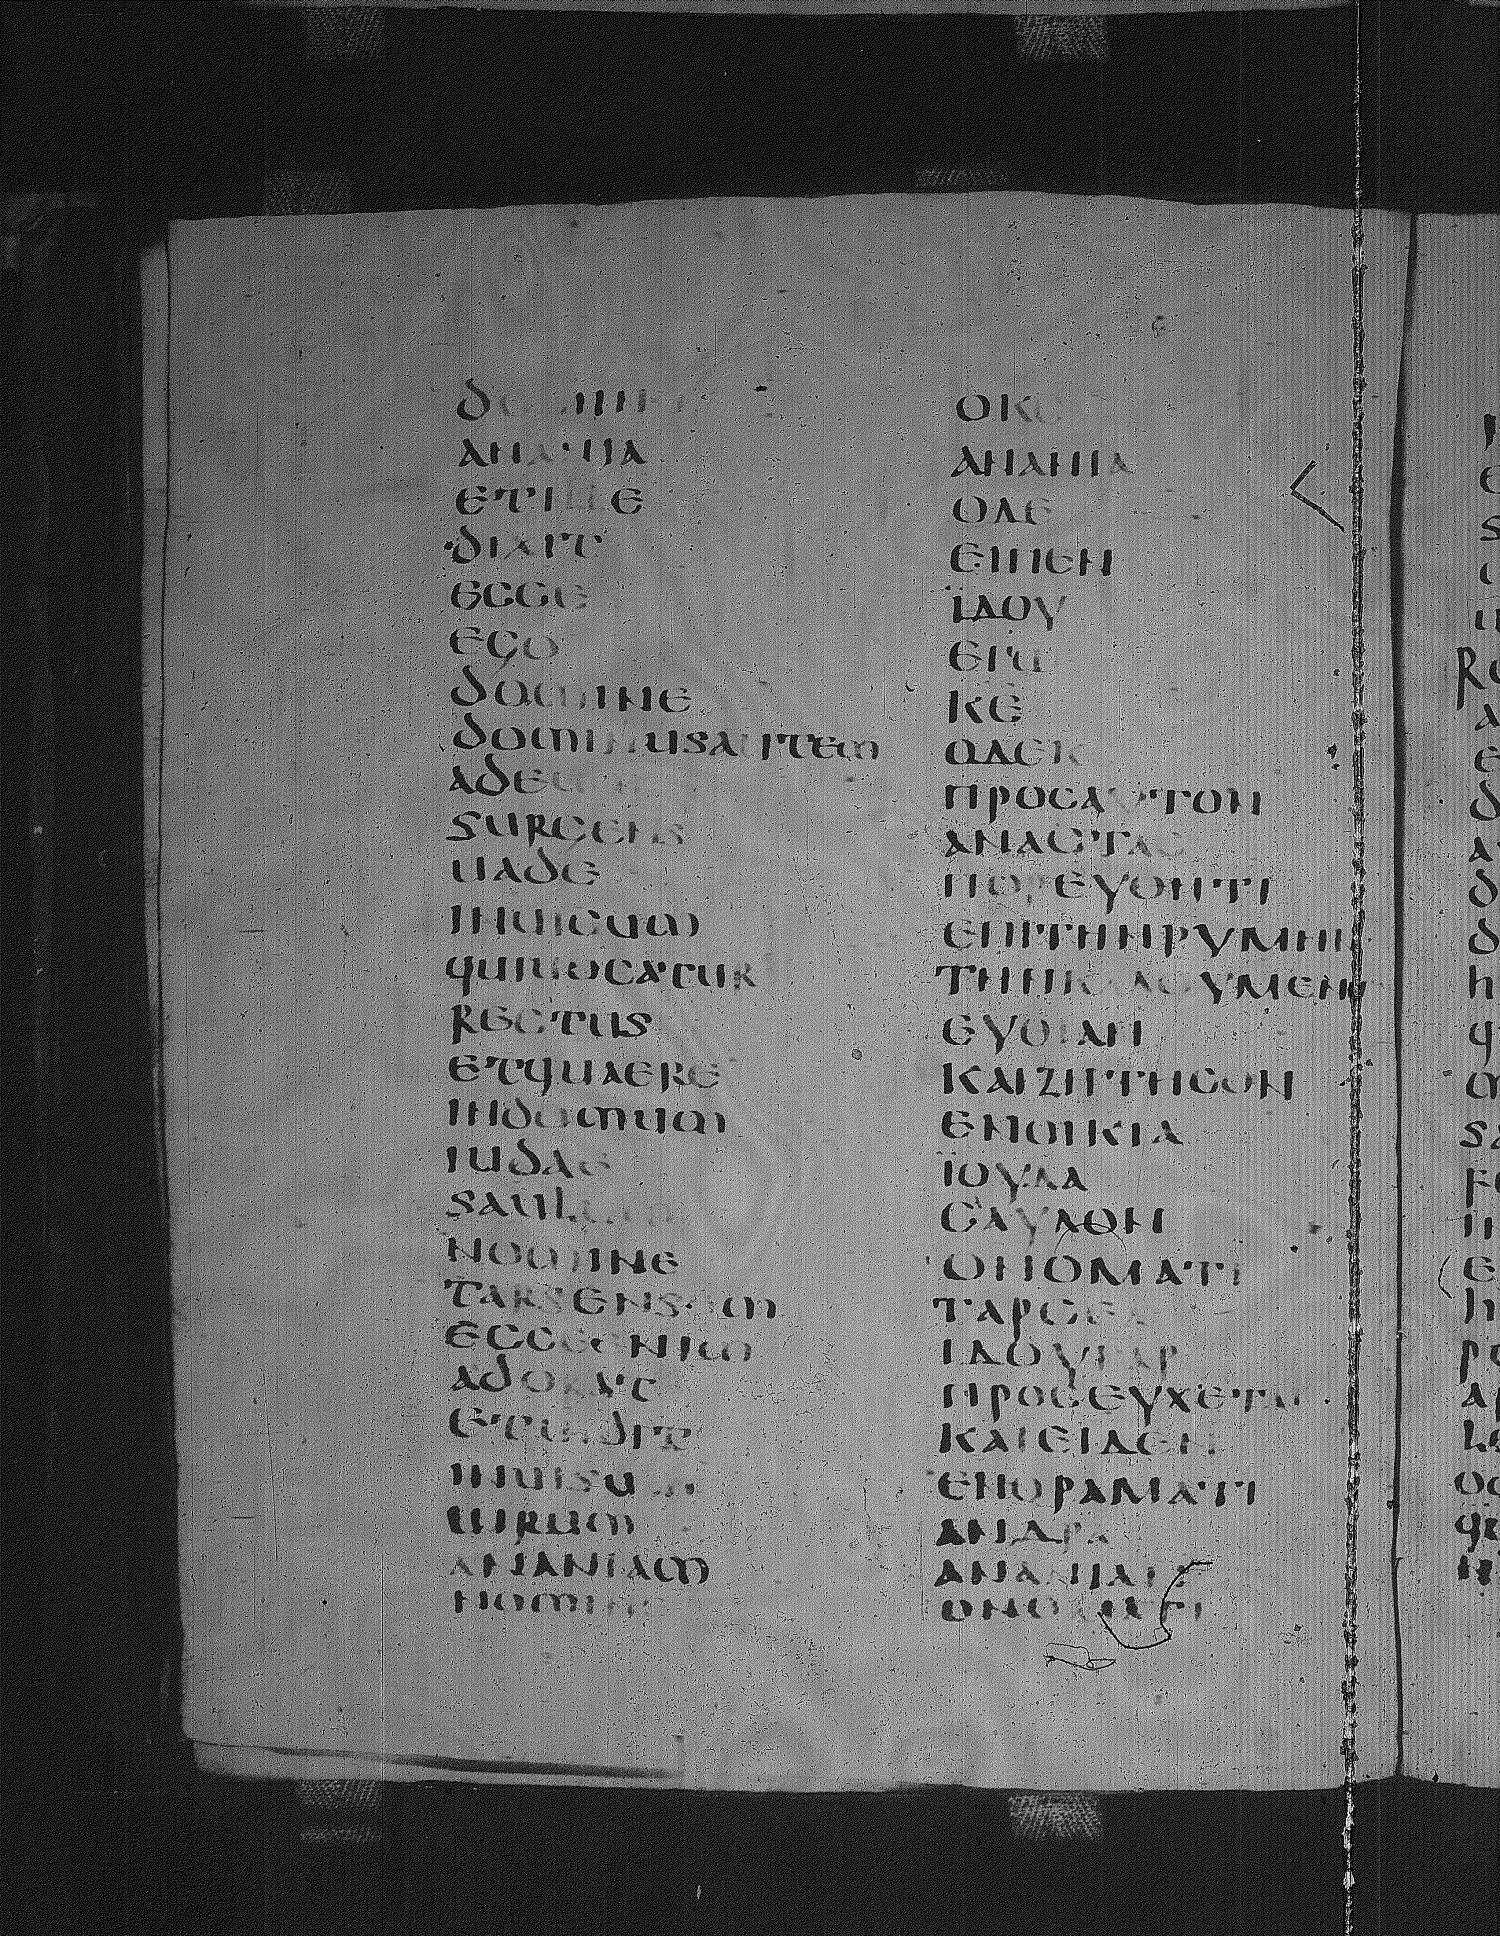 anania
etille
dixit
ecce
ego
domine
dominusautem
adeum
surgens
uade
inuicum
quiuocatur
rectus
etquaere
indomum
iudae
saulum
nomine
tarsensem
ecceenim
adorat
etuidit
inuisu
uirum
ananiam
nomine
ΟΚϹ
ΑΝΑΝΙΑ
ΟΔΕ
ΕΙΠΕΝ
ΪΔΟΥ
ΕΓΩ
ΚΕ
ΟΔΕΚϹ
ΠΡΟϹΑΥΤΟΝ
ΑΝΑϹΤΑϹ
ΠΟΡΕΥΘΗΤΙ
ΕΠΙΤΗΝΡΥΜΗΝ
ΤΗΝΚΑΛΟΥΜΕΝΗΝ
ΕΥΘΙΑΝ
ΚΑΙΖΗΤΗϹΟΝ
ΕΝΟΙΚΙΑ
ΪΟΥΔΑ
ϹΑΥΛΟΝ
ΟΝΟΜΑΤΙ
ΤΑΡϹΕΑ
ΙΔΟΥΓΑΡ
ΠΡΟϹΕΥΧΕΤΑΙ
ΚΑΙΕΙΔΕΝ
ΕΝΟΡΑΜΑΤΙ
ΑΝΔΡΑ
ΑΝΑΝΙΑΝ
ΟΝΟΜΑΤΙ